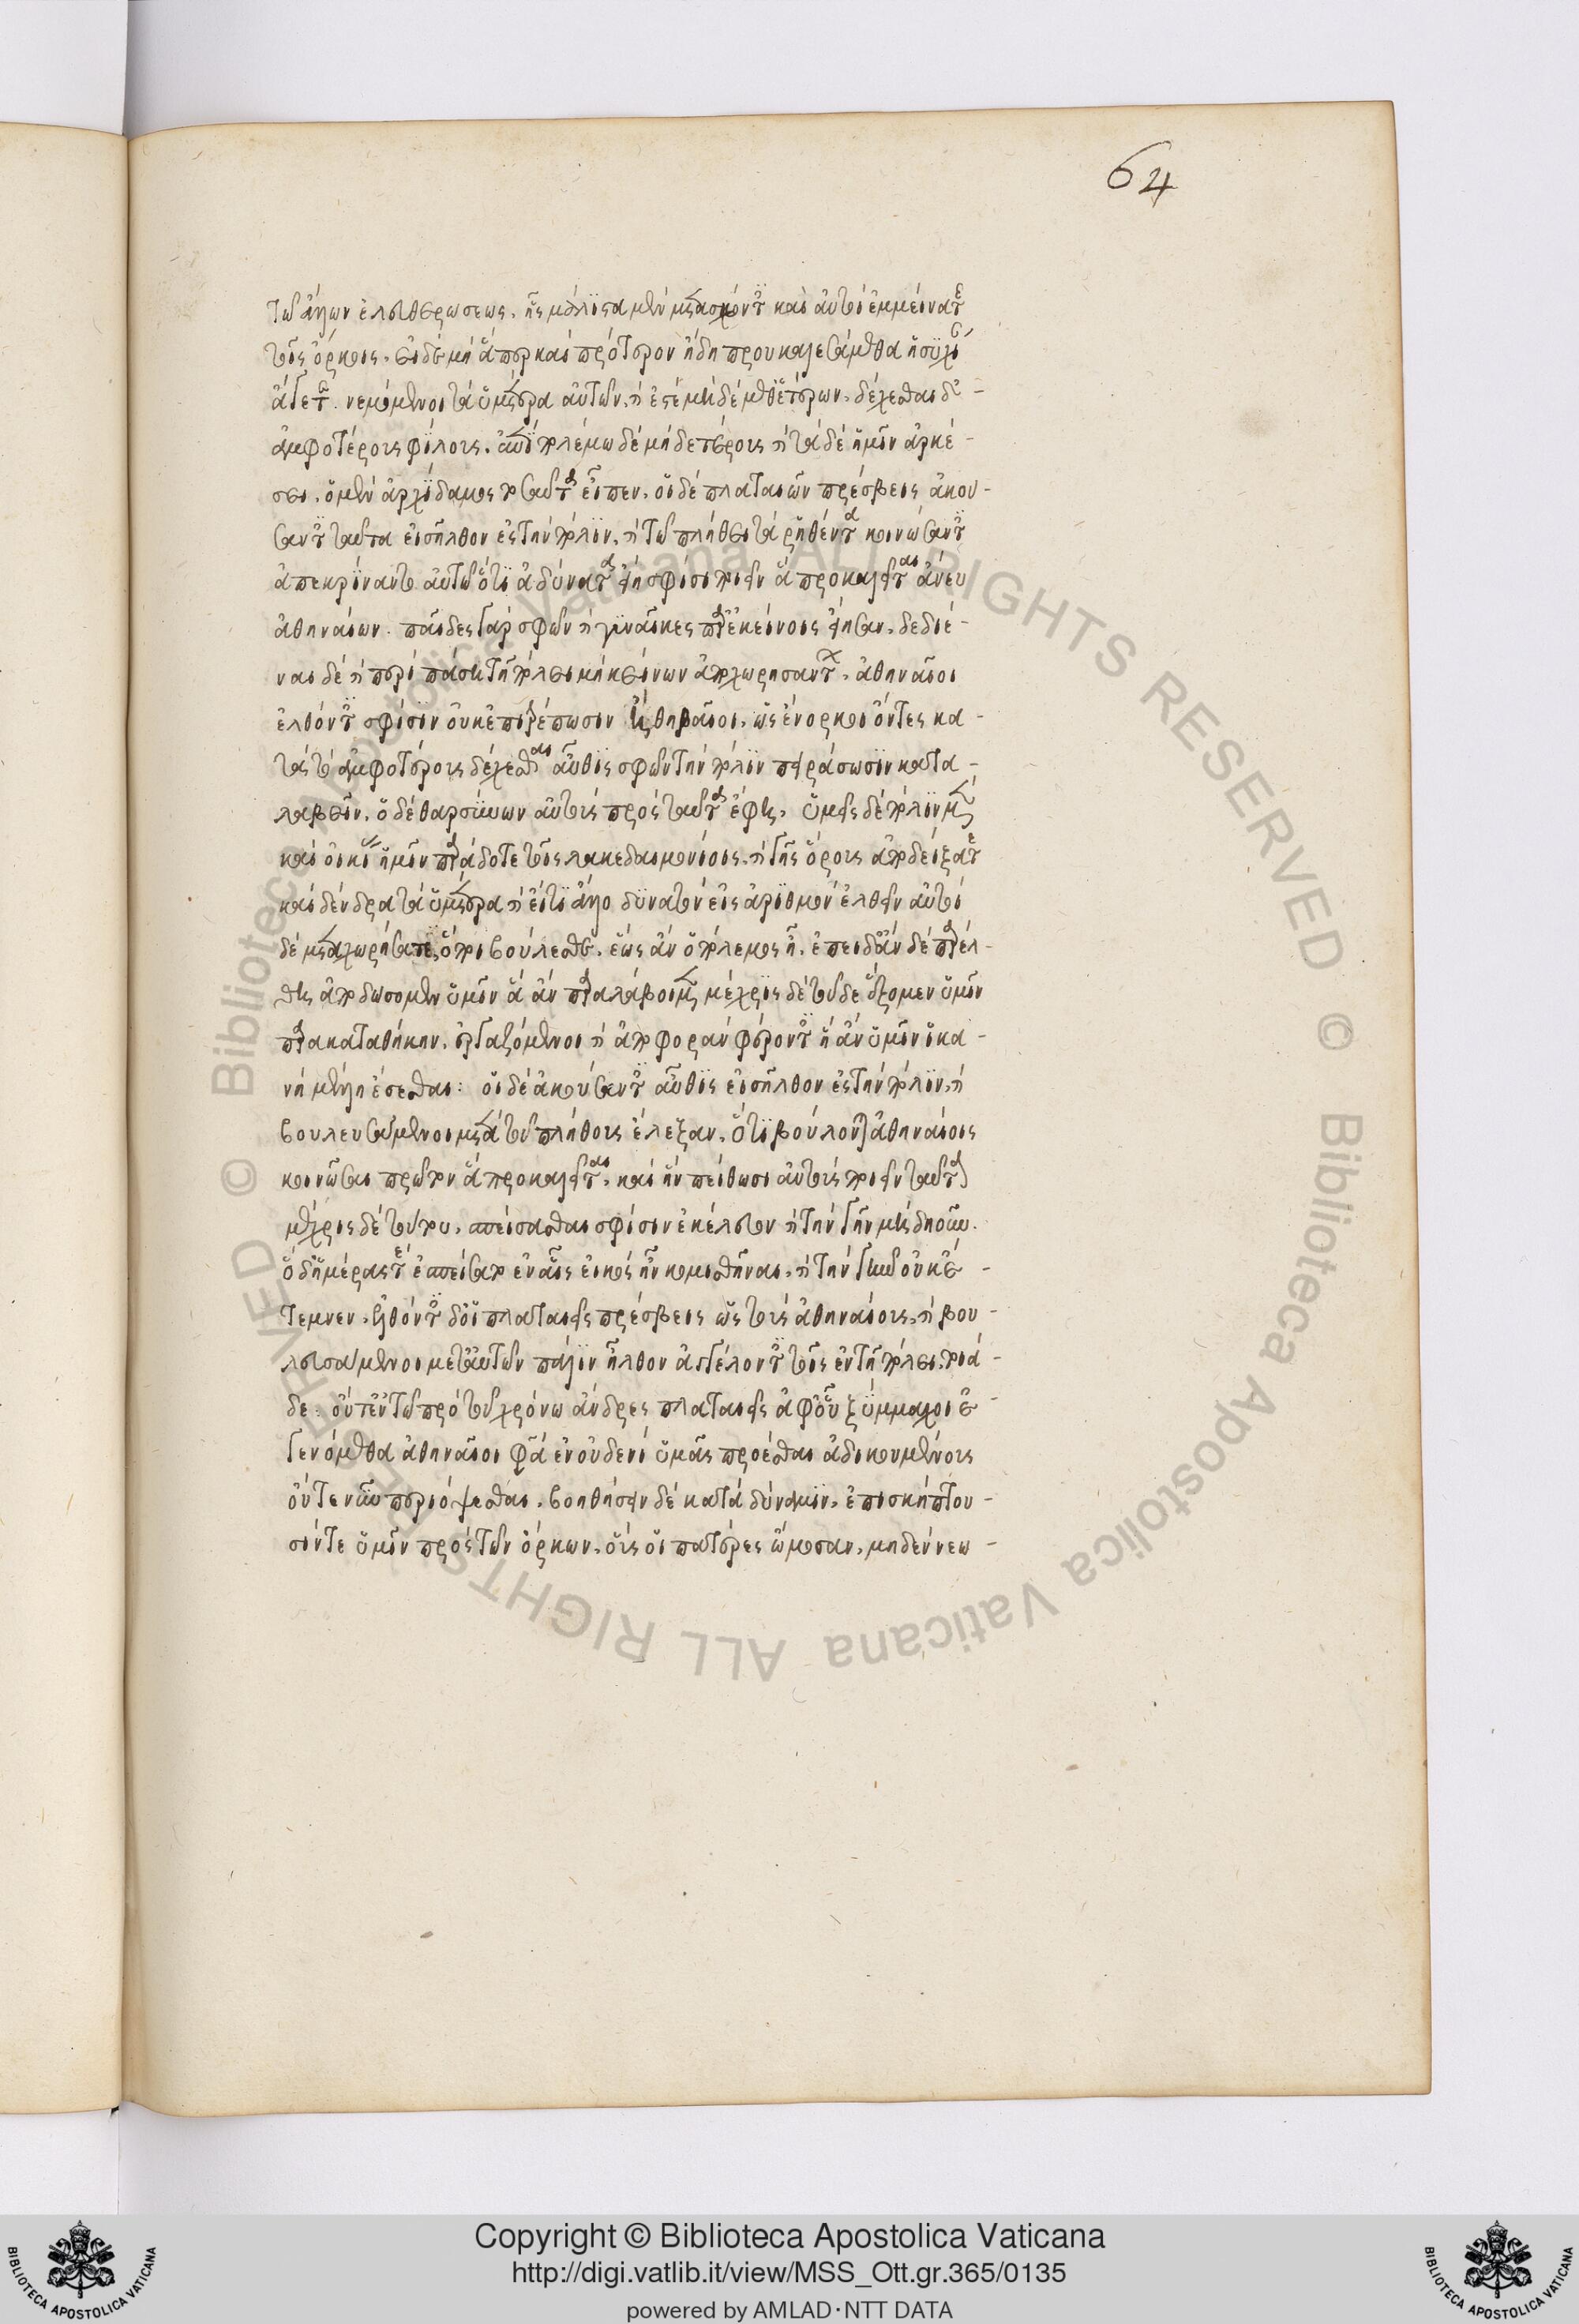 64
τῶν ἄλλων ἐλευθερώσεως. ἧς μάλιστα μὲν μετασχόντες καὶ αὐτοὶ ἐμμείνατε
τοῖς ὅρκοις. εἰ δὲ μὴ ἅπερ καὶ πρότερον ἤδη προυκαλεσάμεθα ἡσυχίαν
ἄγετε. νεμόμενοι τὰ ὑμέτερα αὐτῶν. καὶ ἔστε μηδὲ μεθ' ἑτέρων. δέχεσθαι δὲ -
ἀμφοτέρους φίλους. ἐπὶ πολέμω δὲ μηδετέρους καὶ τάδε ἡμῖν ἀρκέ -
σει. ὁ μὲν ἀρχίδαμος τοσαῦτα εἶπεν. οἱ δὲ πλαταιῶν πρέσβεις ἀκού -
σαντες ταῦτα εἰσῆλθον ἐς τὴν πόλιν. καὶ τῶ πλήθει τὰ ῥηθέντα κοινώσαντες
ἀπεκρίναντο αὐτῶ ὅτι ἀδύνατα σφίσι ποιεῖν ἃ προκαλεῖται ἄνευ
ἀθηναίων. παῖδες γὰρ σφῶν καὶ γυναῖκες παρ' ἐκείνοις εἴησαν. δεδιέ -
ναι δὲ καὶ περὶ πάση τῆ πόλει μὴ κείνων ἀποχωρησάντων. ἀθηναῖοι
ἐλθόντες σφίσιν οὐκ ἐπιτρέπωσιν ἢ θηβαῖοι. ὡς ἔνορκοι ὄντες κα -
τὰ τὸ ἀμφοτέρους δέχεσθαι αὖθις σφῶν τὴν πόλιν πειράσωσιν κατα -
λαβεῖν. ὁ δὲ θαρσύνων αὐτοὺς πρὸς ταῦτα ἔφη. ὑμεῖς δὲ πόλιν μὲν
καὶ οἰκίας ἡμῖν παράδοτε τοῖς λακεδαιμονίοις. καὶ γῆς ὅρους ἀποδείξατε
καὶ δένδρα τὰ ὑμέτερα καὶ εἴ τι ἄλλο δυνατὸν εἰς ἀριθμὸν ἐλθεῖν αὐτοὶ
δὲ μεταχωρήσατε, ὅποι βούλεσθε. ἕως ἂν ὁ πόλεμος ἦ. ἐπειδὰν δὲ παρέλ -
θη ἀποδώσομεν ὑμῖν ἃ ἂν παραλάβωμεν μέχρις δὲ τοῦδε ἕξομεν ὑμῖν
παρακαταθήκην. ἐργαζόμενοι καὶ ἀποφορὰν φέροντες ἣ ἂν ὑμῖν ἱκα -
νὴ μέλλη ἔσεσθαι: οἱ δὲ ἀκούσαντες αὖθις εἰσῆλθον ἐς τὴν πόλιν. καὶ
βουλευσάμενοι μετὰ τοῦ πλήθους ἔλεξαν. ὅτι βούλονται ἀθηναίοις
κοινῶσαι πρῶτον ἃ προκαλεῖται. καὶ ἢν πείθωσι αὐτοὺς ποιεῖν ταῦτα
μέχρις δὲ τούτου. σπείσασθαι σφίσιν ἐκέλευον καὶ τὴν γῆν μὴ δηοῦν.
ὁ δ' ἡμέρας τὲ ἐσπείσατο ἐν αἷς εἰκὸς ἦν κομισθῆναι. καὶ τὴν γῆν οὐκ ἔ -
τεμνεν. ἐλθόντες δ' οἱ πλαταιεῖς πρέσβεις ὡς τοὺς ἀθηναίους. καὶ βου -
λευσάμενοι μετ' αὐτῶν πάλιν ἦλθον ἀγγέλοντες τοῖς ἐν τῆ πόλει. τοιά -
δε: οὔτ' ἐν τῶ πρὸ τοῦ χρόνω ἄνδρες πλαταιεῖς ἀφ' οὗ ξύμμαχοι ἐ -
γενόμεθα ἀθηναῖοι φασὶ ἐν οὐδενὶ ὑμᾶς προέσθαι ἀδικουμένους
οὔτε νῦν περιόψεσθαι. βοηθήσειν δὲ κατὰ δύναμιν. ἐπισκήπτου -
σίν τε ὑμῖν πρὸς τῶν ὅρκων. οὓς οἱ πατέρες ὤμοσαν. μηδὲν νεω -
Copyright © Biblioteca Apostolica Vaticana
http://digi.vatlib.it/view/MSS_Ott.gr.365/0135
powered by AMLAD·NTT DATA
BIBLIOTECA APOSTOLICA VATICANA
BIBLIOTECA APOSTOLICA VATICANA
© Biblioteca Apostolica Vaticana ALL RIGHTS RESERVED © Biblioteca Apostolica Vaticana ALL RIGHTS RESERVED